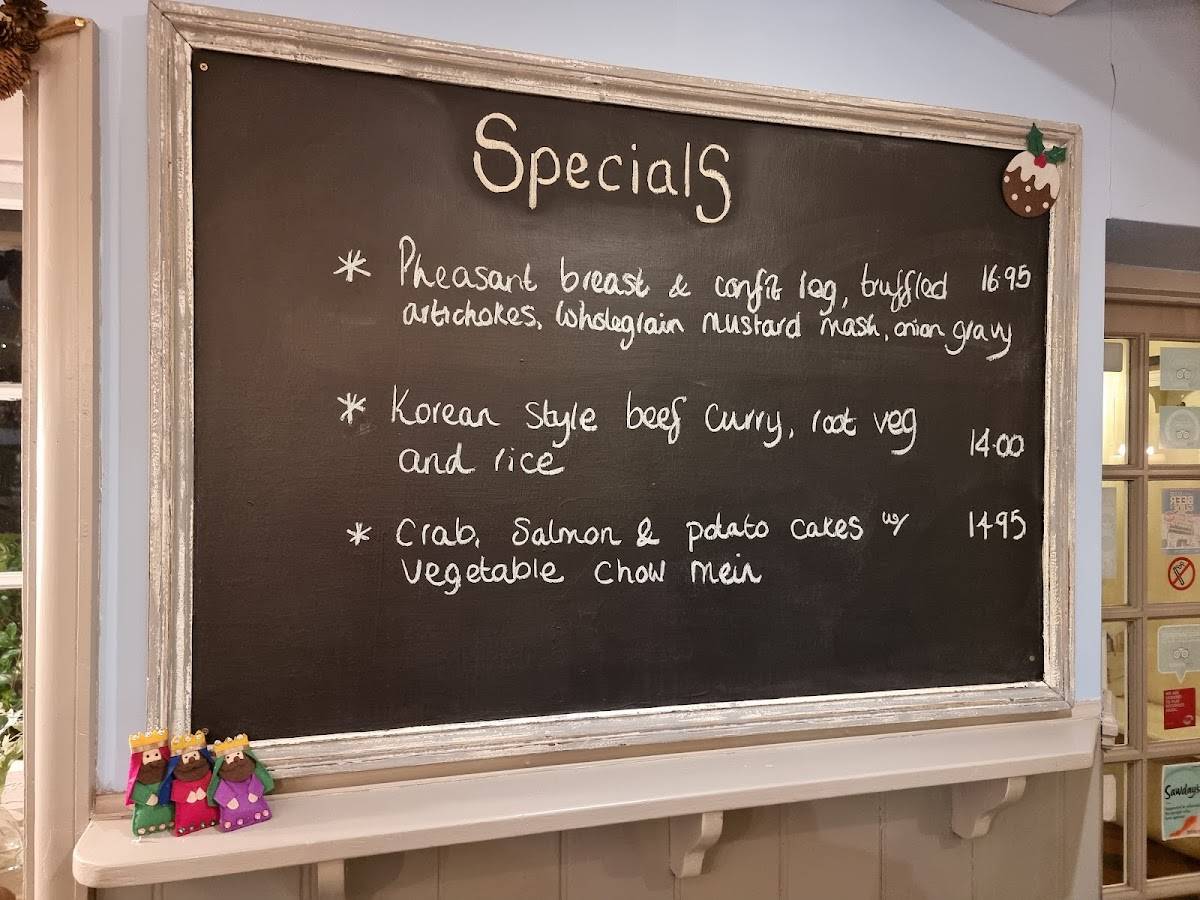 Specials
* Pheasant breast & confit leg, truffled 16.95
artichokes, wholegrain mustard mash, onion gravy
* Korean style beef curry, root veg
and rice 14.00
* Crab, Salmon & potato cakes w/ 14.95
vegetable chow mein
BEER
Sawdays